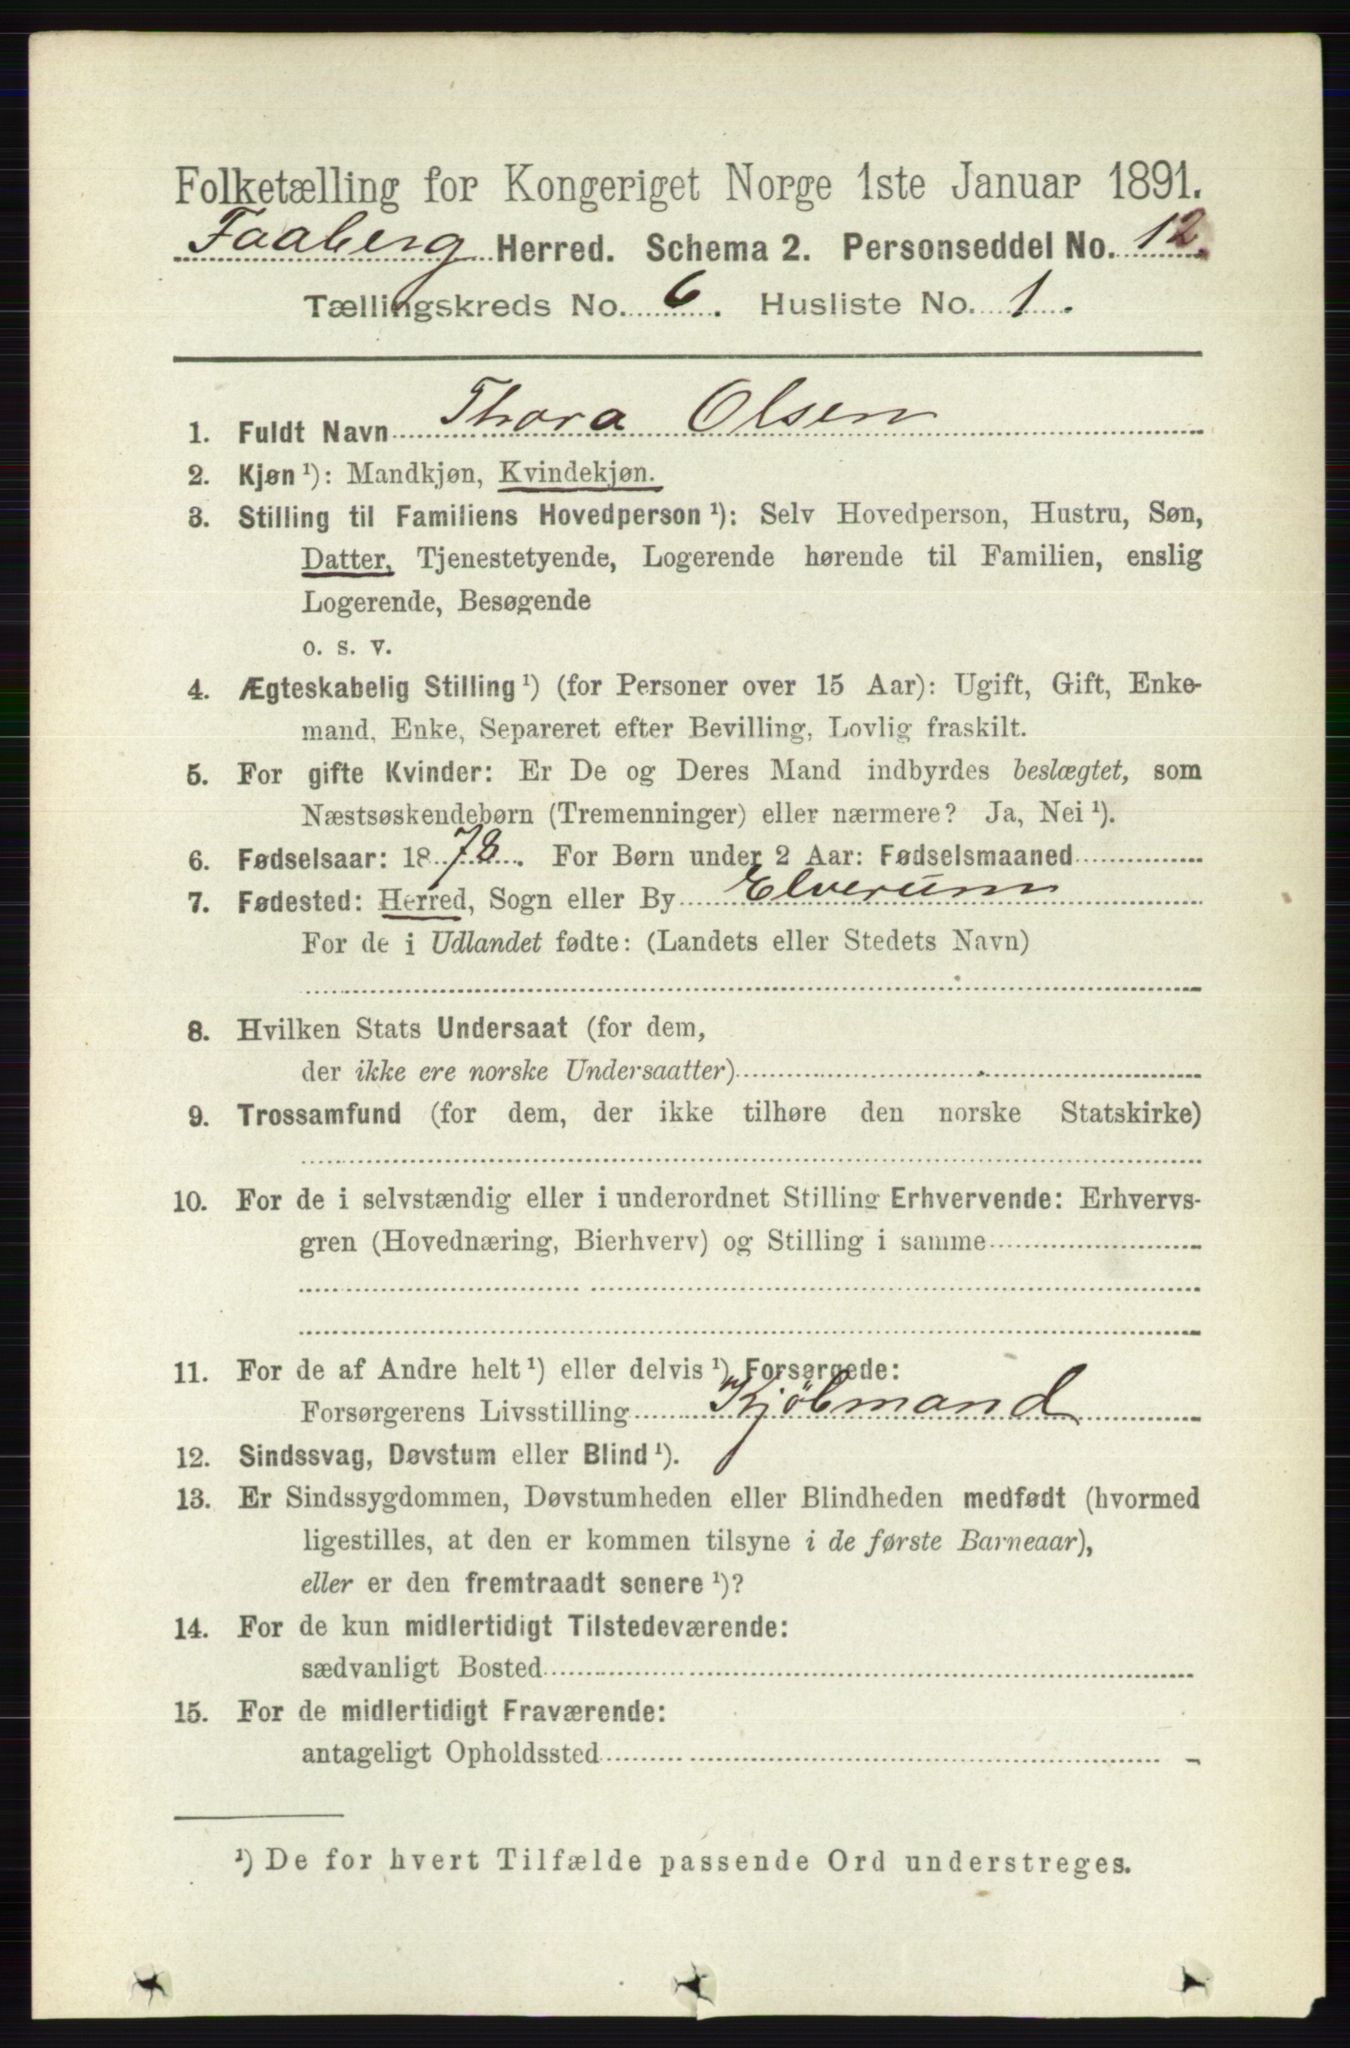 Folketælling for Kongeriget Norge 1ste Januar 1891.
Faaberg Herred. Schema 2. Personseddel No. 12.
Tællingskreds No. 6. Husliste No. 1.
1. Fuldt Navn Thora Olsen
2. Kjøn¹): Mandkjøn, Kvindekjøn.
3. Stilling til Familiens Hovedperson¹): Selv Hovedperson, Hustru, Søn,
Datter, Tjenestetyende, Logerende hørende til Familien, enslig
Logerende, Besøgende
o. s. v.
4. Ægteskabelig Stilling¹) (for Personer over 15 Aar): Ugift, Gift, Enke-
mand, Enke, Separeret efter Bevilling, Lovlig fraskilt.
5. For gifte Kvinder: Er De og Deres Mand indbyrdes beslægtet, som
Næstsøskendebørn (Tremenninger) eller nærmere? Ja, Nei¹).
6. Fødselsaar: 1878. For Børn under 2 Aar: Fødselsmaaned
7. Fødested: Herred, Sogn eller By Elverum
For de i Udlandet fødte: (Landets eller Stedets Navn)
8. Hvilken Stats Undersaat (for dem,
der ikke ere norske Undersaatter)
9. Trossamfund (for dem, der ikke tilhøre den norske Statskirke)
10. For de i selvstændig eller i underordnet Stilling Erhvervende: Erhvervs-
gren (Hovednæring, Bierhverv) og Stilling i samme
11. For de af Andre helt¹) eller delvis¹) Forsørgede:
Forsørgerens Livsstilling Kjöbmand
12. Sindssvag, Døvstum eller Blind¹).
13. Er Sindssygdommen, Døvstumheden eller Blindheden medfødt (hvormed
ligestilles, at den er kommen tilsyne i de første Barneaar),
eller er den fremtraadt senere¹)?
14. For de kun midlertidigt Tilstedeværende:
sædvanligt Bosted
15. For de midlertidigt Fraværende:
antageligt Opholdssted
¹) De for hvert Tilfælde passende Ord understreges.